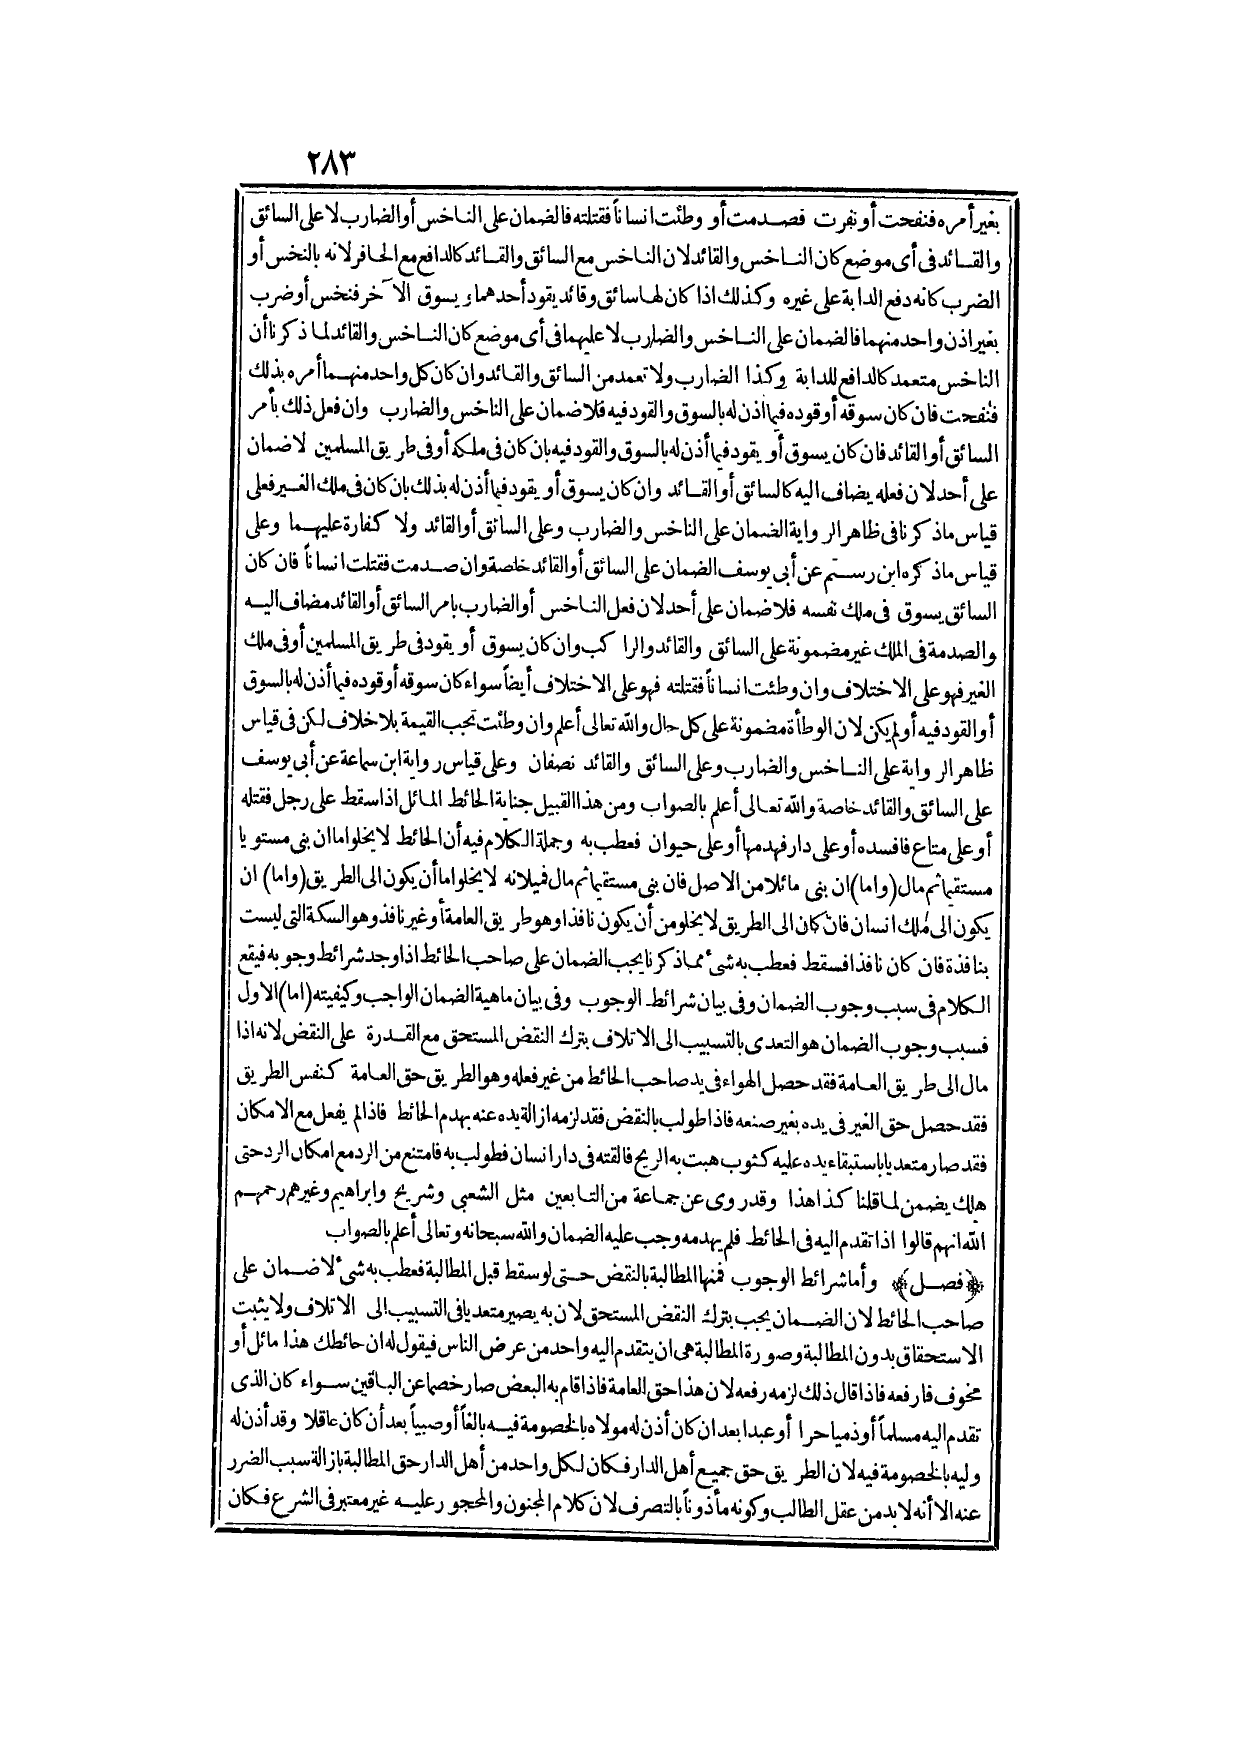 ٢٨٣
بغير أمره فنفحت أو نفرت فصدمت أو وطئت انساناً فقتلته فالضمان على الناخس أو الضارب لا على السائق
والقائد فى أى موضع كان الناخس والقائد لان الناخس مع السائق والقائد كالدافع مع الحافر لانه بالنخس أو
الضرب كانه دفع الدابة على غيره وكذلك اذا كان لها سائق وقائد يقود أحدهما ويسوق الآخر فنخس أو ضرب
بغير اذن واحد منهما فالضمان على الناخس والضارب لا عليهما فى أى موضع كان الناخس والقائد لما ذكرنا أن
الناخس متعمد كالدافع للدابة وكذا الضارب ولا تعمد من السائق والقائد وان كان كل واحد منهما أمره بذلك
فنفحت فان كان سوقه أو قوده فيما اذن له بالسوق والقود فيه فلا ضمان على الناخس والضارب وان فعل ذلك بأمر
السائق أو القائد فان كان يسوق أو يقود فيما أذن له بالسوق والقود فيه بان كان فى ملكه أو فى طريق المسلمين لا ضمان
على أحد لان فعله يضاف اليه كالسائق أو القائد وان كان يسوق أو يقود فيما أذن له بذلك بان كان فى ملك الغير فعلى
قياس ما ذكرنا فى ظاهر الرواية الضمان على الناخس والضارب وعلى السائق أو القائد ولا كفارة عليهما وعلى
قياس ما ذكره ابن رستم عن أبى يوسف الضمان على السائق أو القائد خاصة وان صدمت فقتلت انساناً فان كان
السائق يسوق فى ملك نفسه فلا ضمان على أحد لان فعل الناخس أو الضارب بامر السائق أو القائد مضاف اليه
والصدمة فى الملك غير مضمونة على السائق والقائد والراكب وان كان يسوق أو يقود فى طريق المسلمين أو فى ملك
الغير فهو على الاختلاف وان وطئت انساناً فقتلته فهو على الاختلاف أيضاً سواء كان سوقه أو قوده فيما أذن له بالسوق
أو القود فيه أو لم يكن لان الوطأة مضمونة على كل حال والله تعالى أعلم وان وطئت تجب القيمة بلا خلاف لكن فى قياس
ظاهر الرواية على الناخس والضارب وعلى السائق والقائد نصفان وعلى قياس رواية ابن سماعة عن أبى يوسف
على السائق والقائد خاصة والله تعالى أعلم بالصواب ومن هذا القبيل جناية الحائط المائل اذا سقط على رجل فقتله
أو على متاع فافسده أو على دار فهدمها أو على حيوان فعطب به وجملة الكلام فيه أن الحائط لا يخلو اما ان بنى مستويا
مستقيما ثم مال (واما) ان بنى مائلا من الاصل فان بنى مستقيما ثم مال فميلانه لا يخلو اما أن يكون الى الطريق (واما) ان
يكون الى ملك انسان فان كان الى الطريق لا يخلو من أن يكون نافذا وهو طريق العامة أو غير نافذ وهو السكة التى ليست
بنافذة فان كان نافذا فسقط فعطب به شىء مما ذكرنا يجب الضمان على صاحب الحائط اذا وجد شرائط وجوبه فيقع
الكلام فى سبب وجوب الضمان وفى بيان شرائط الوجوب وفى بيان ماهية الضمان الواجب وكيفيته (اما) الاول
فسبب وجوب الضمان هو التعدى بالتسبيب الى الاتلاف بترك النقض المستحق مع القدرة على النقض لانه اذا
مال الى طريق العامة فقد حصل الهواء فى يد صاحب الحائط من غير فعله وهو الطريق حق العامة كنفس الطريق
فقد حصل حق الغير فى يده بغير صنعه فاذا طولب بالنقض فقد لزمه ازالة يده عنه بهدم الحائط فاذا لم يفعل مع الامكان
فقد صار متعديا باستبقاء يده عليه كثوب هبت به الريح فالقته فى دار انسان فطولب به فامتنع من الرد مع امكان الرد حتى
هلك يضمن لما قلنا كذا هذا وقد روى عن جماعة من التابعين مثل الشعبى وشريح وابراهيم وغيرهم رحمهم
الله انهم قالوا اذا تقدم اليه فى الحائط فلم يهدمه وجب عليه الضمان والله سبحانه وتعالى أعلم بالصواب
﴿فصل﴾ وأما شرائط الوجوب فمنها المطالبة بالنقض حتى لو سقط قبل المطالبة فعطب به شىء لا ضمان على
صاحب الحائط لان الضمان يجب بترك النقض المستحق لان به يصير متعديا فى التسبيب الى الاتلاف ولا يثبت
الاستحقاق بدون المطالبة وصورة المطالبة هى ان يتقدم اليه واحد من عرض الناس فيقول له ان حائطك هذا مائل أو
مخوف فارفعه فاذا قال ذلك لزمه رفعه لان هذا حق العامة فاذا قام به البعض صار خصما عن الباقين سواء كان الذى
تقدم اليه مسلماً أو ذميا حرا أو عبدا بعد ان كان أذن له مولاه بالخصومة فيه بالغاً أو صبياً بعد أن كان عاقلا وقد أذن له
وليه بالخصومة فيه لان الطريق حق جميع أهل الدار فكان لكل واحد من أهل الدار حق المطالبة بازالة سبب الضرر
عنه الا أنه لا بد من عقل الطالب وكونه مأذوناً بالتصرف لان كلام المجنون والمحجور عليه غير معتبر فى الشرع فكان